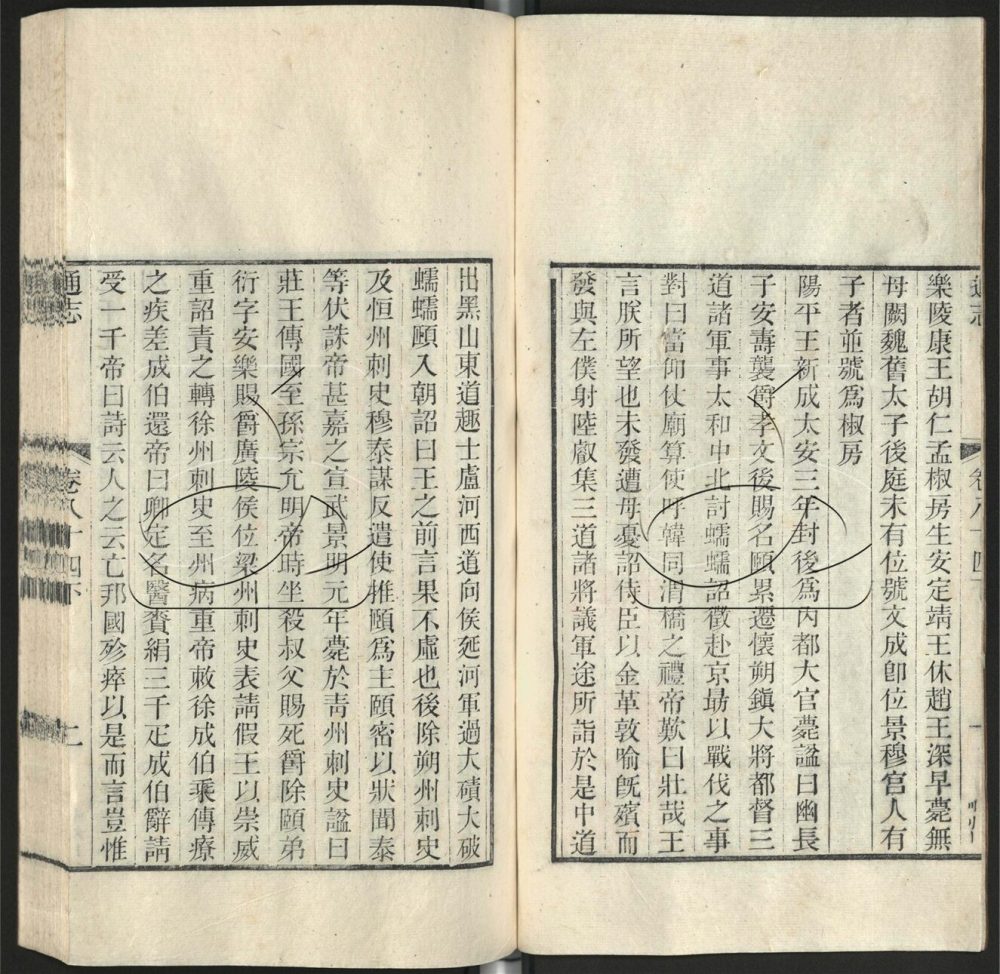 樂陵康王胡仁孟椒房生安定靖王休趙王深早薨無
母闕魏舊太子後庭未有位號文成卽位景穆宮人有
子者並號爲椒房
陽平王新成太安三年封後爲內都大官薨諡曰幽長
子安壽襲爵孝文後賜名頤累遷懷朔鎭大將都督三
道諸軍事太和中北討蠕蠕詔徵赴京勗以戰伐之事
對曰當仰仗廟算使呼韓同渭橋之禮帝歎曰壯哉王
言朕所望也未發遭母憂詔侍臣以金革敦喻旣殯而
發與左僕射陸叡集三道諸將議軍途所詣於是中道
出黑山東道趣士盧河西道向侯延河軍過大磧大破
蠕蠕頤入朝詔曰王之前言果不虛也後除朔州刺史
及恒州刺史穆泰謀反遣使推頤爲主頤密以狀聞泰
等伏誅帝甚嘉之宣武景明元年薨於靑州刺史諡曰
莊王傳國至孫宗允明帝時坐殺叔父賜死爵除頤弟
衍字安樂賜爵廣陵侯位梁州刺史表請假王以崇威
重詔責之轉徐州刺史至州病重帝敕徐成伯乘傳療
之疾差成伯還帝曰卿定名醫賚絹三千疋成伯辭請
受一千帝曰詩云人之云亡邦國殄瘁以是而言豈惟
通志
卷八十四下
二